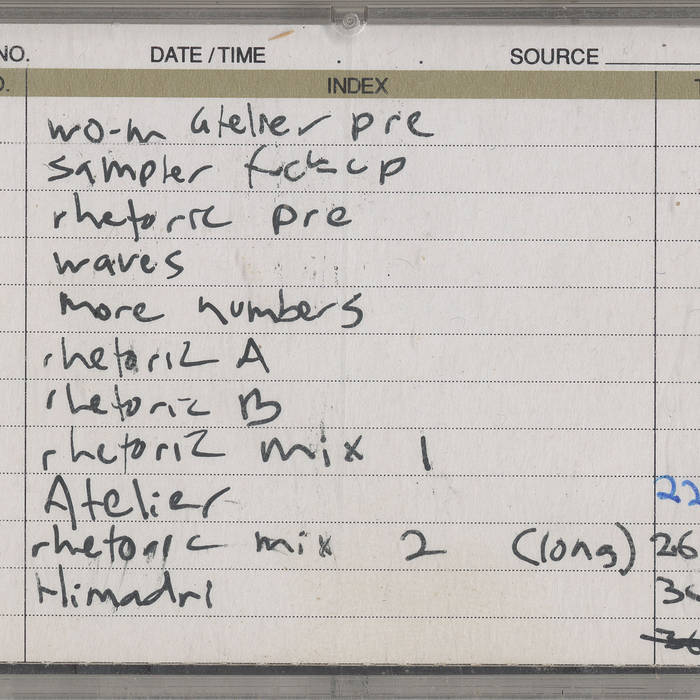 NO. DATE / TIME . . SOURCE
INDEX
wo-m atelier pre
sampler fuck-up
rhetoric pre
waves
more numbers
rhetoric A
rhetoric B
rhetoric mix 1
Atelier 22
rhetoric mix 2 (long) 26
Himadri